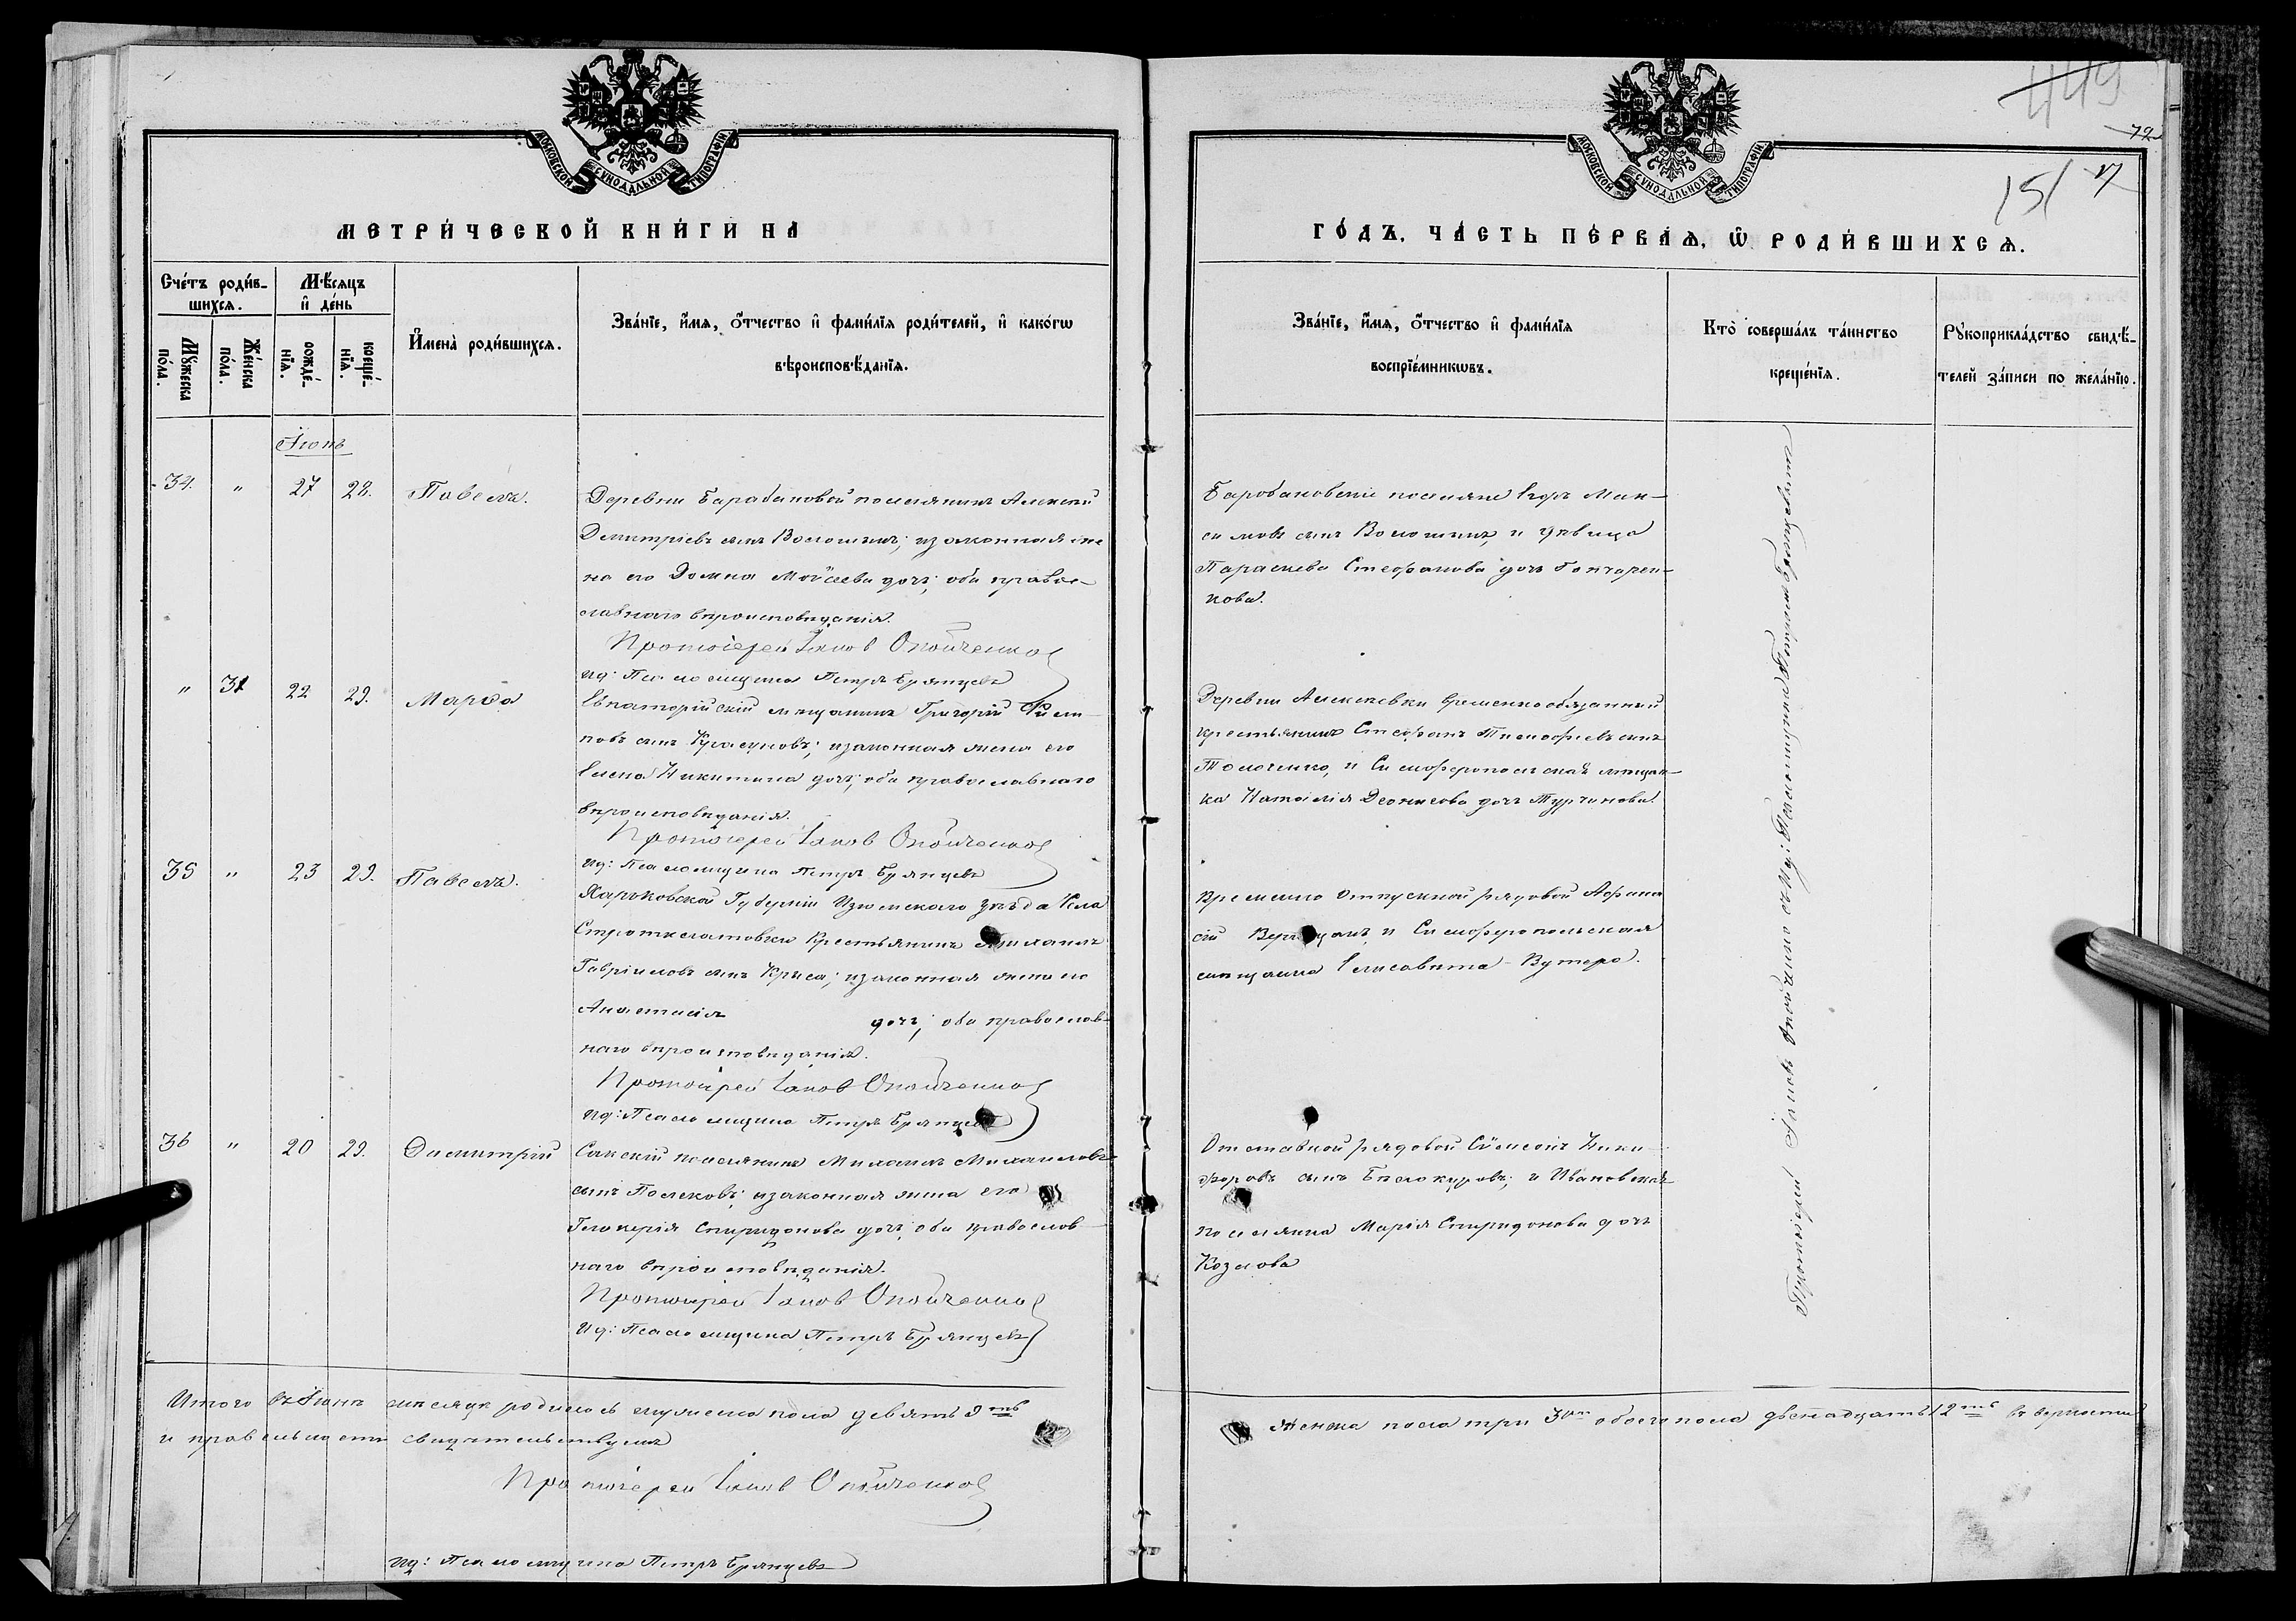 МОСКОВСКОЙ СѴНОДАЛЬНОЙ ТИПОГРАФІИ
МЕТРИ́ЧЕСКОЙ КНИ́ГИ НА
Сче́тъ роди́в-
шихсѧ.
Мѣ́сѧцъ
и҆ де́нь
Мꙋ́жеска
по́ла.
Же́нска
по́ла.
рожде́-
нїѧ.
креще́-
нїѧ.
И҆мена̀ роди́вшихсѧ.
Зва́нїе, и҆́мѧ, ѻ҆́тчество и҆ фами́лїѧ роди́телей, и҆ како́гѡ
вѣроисповѣ́данїѧ.
Іюнь
34. " 27 28. Павелъ.
Деревни Барабановой поселянинъ Алексѣй
Димитріевъ сынъ Волошинъ; и законная же
на его Домна Моѵсеева дочь; оба право-
славнаго вѣроисповѣданія.
Протоіерей Іаковъ Опойченко
ид: Псаломщика Петръ Брянцевъ
" 31 22 29. Марѳа
Евпаторійскій мѣщанинъ Григорій Филип-
повъ сынъ Красуновъ; и законная жена его
Елена Никитина дочь; оба православнаго
вѣроисповѣданія.
Протоіерей Іаковъ Опойченко
ид: Псаломщика Петръ Брянцевъ
35 " 23 29. Павелъ.
Харьковской Губерніи Изюмскаго уѣзда Села
Крестьянинъ Михаилъ
Гавріиловъ сынъ Криса; и законная жена его
Анастасія дочь; оба православ-
наго вѣроисповѣданія.
Протоіерей Іаковъ Опойченко
ид: Псаломщика Петръ Брянцевъ
36 " 20 29. Димитрій
Сакскій поселянинъ Михаилъ Михаиловъ
сынъ Полековъ; и законная жена его
Гликерія Спиридонова дочь; оба православ
наго вѣроисповѣданія.
Протоіерей Іаковъ Опойченко
ид: Псаломщика Петръ Брянцевъ
Итого въ Іюнѣ мѣсяцѣ родилось мужеска пола девять 9ть
и правильности свидѣтельствуемъ
Протоіерей Іаковъ Опойченко
ид: Псаломщика Петръ Брянцевъ
449
72
151
МОСКОВСКОЙ СѴНОДАЛЬНОЙ ТИПОГРАФІИ
ГО́ДЪ, ЧА́СТЬ ПЕ́РВАѦ, Ѡ҆ РОДИ́ВШИХСѦ.
Зва́нїе, и҆́мѧ, ѻ҆́тчество и҆ фами́лїѧ
воспрїе́мникѡвъ.
Кто̀ соверша́лъ та́инство
креще́нїѧ.
Рꙋкоприкла́дство свидѣ́-
телей за́писи по жела́нїю.
Баробановскіе поселяне Егоръ Мак-
симовъ сынъ Волошинъ, и дѣвица
Параскева Стефанова дочь Гончарен-
кова.
Деревни Алексѣевки временнообязанный
крестьянинъ Стефанъ Тимофѣевъ сынъ
Толоченко, и Симферопольская мѣщан-
ка Наталія Деонисова дочь Турчинова.
Временно отпускной рядовой Афана
сій и Симферопольская
мѣщанка Елисавета Бутера.
Отставной рядовой Сѵмеонъ Ники-
форовъ сынъ Бѣлокуровъ; и Ивановская
поселянка Марія Спиридонова дочь
Козлова
Протоіерей Іаковъ Опойченко съ ид: Псаломщика Петромъ Брянцевымъ
Женска пола три 3 обоего пола двѣнадцать 12ть въ вѣрности